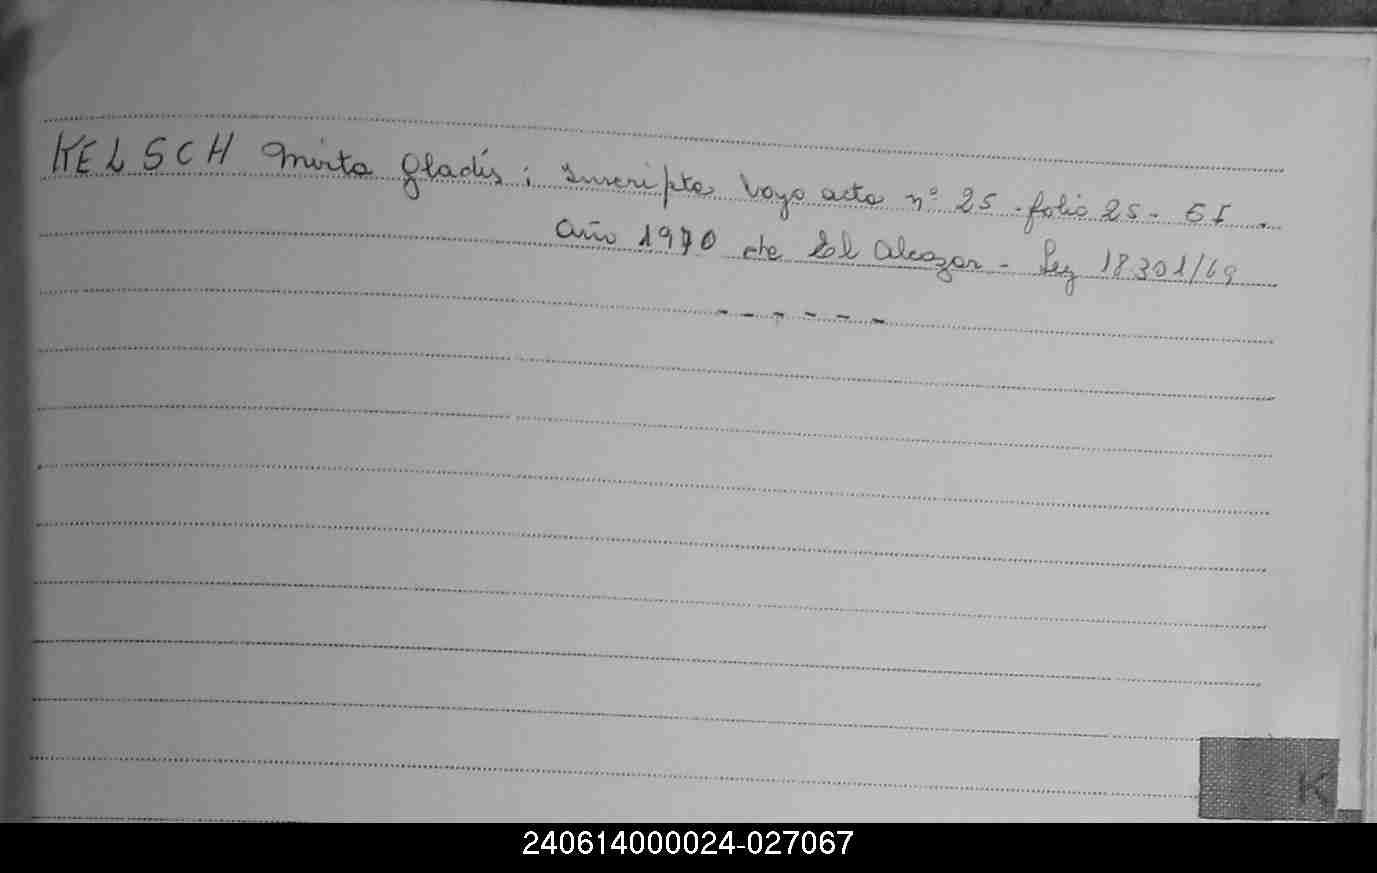 KELSCH Mirta Gladis; Inscripta bajo acta nº 25 - folio 25 - GI.
Año 1970 de El Alcazar - Ley 18301/69
- - - - - -
K
240614000024-027067